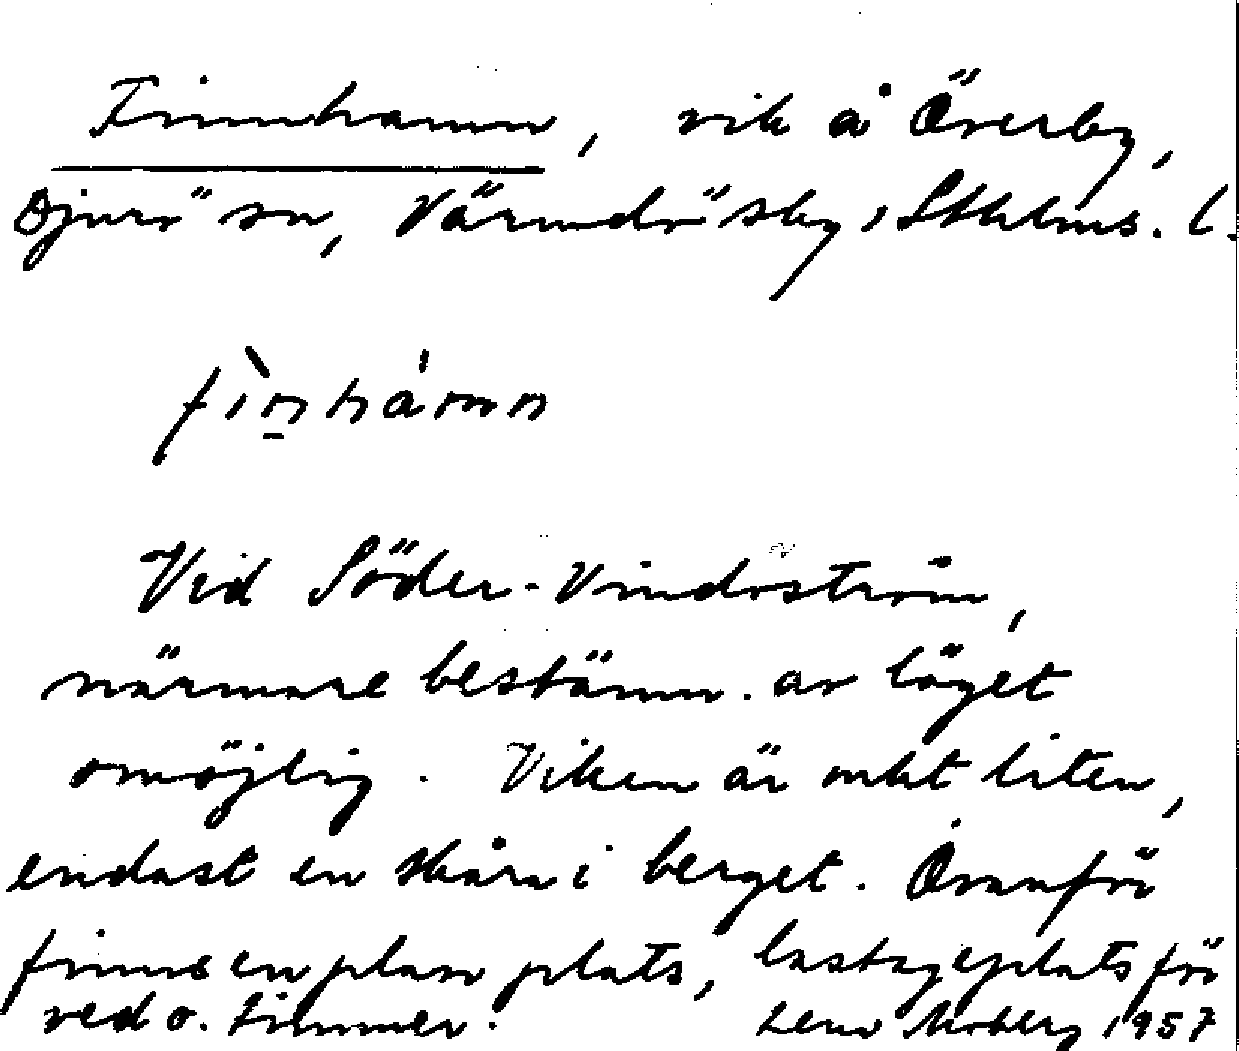 Finnhamn, vik å Överby,
Djurö sn, Värmdö sky, Sthlms. l.
fìn̠hámn
Vid Söder-Vindöström,
närmare bestämn. av läget
omöjlig. Viken är mkt liten,
endast en skåra i berget. Ovanför
finns en plan plats, lastageplats för
ved o. timmer. Lena Moberg 1957